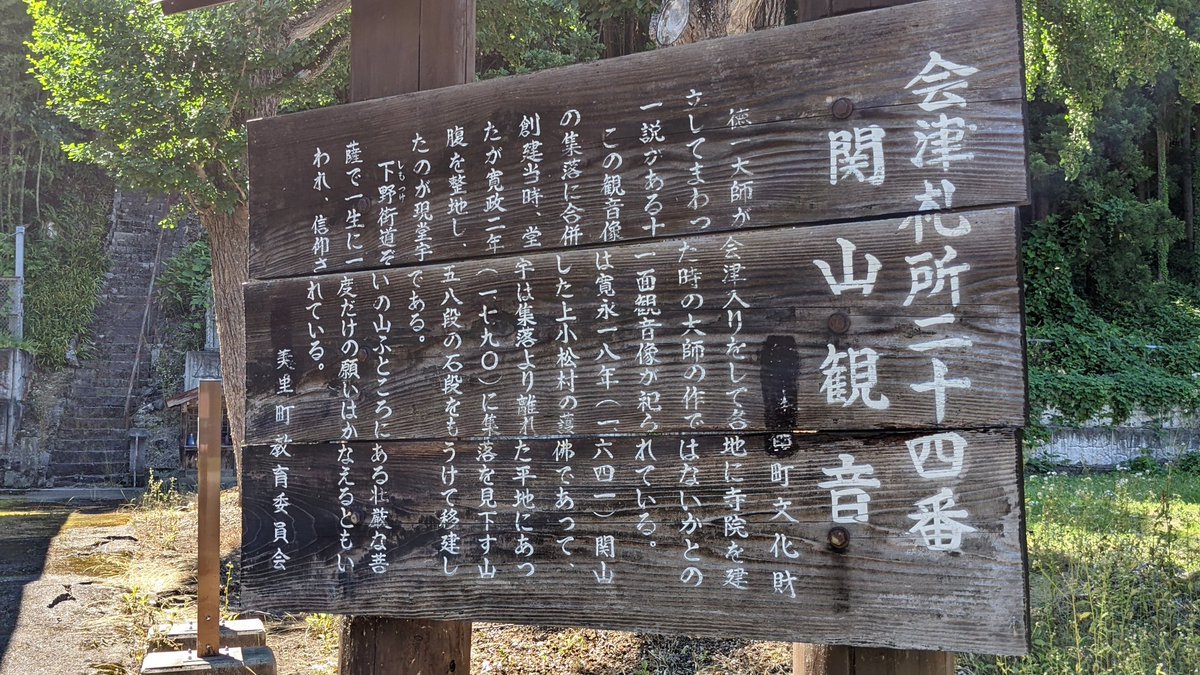 会津札所二十四番
関山観音
町文化財
徳一大師が会津入りをして各地に寺院を建
立してまわった時の大師の作ではないかとの
一説がある十一面観音像が祀られている。
この観音像は寛永一八年(一六四一)関山
の集落に合併した上小松村の佛であって、
創建当時、堂宇は集落より離れた平地にあっ
たが寛政二年(一七九〇)に集落を見下す山
腹を整地し、五八段の石段をもうけて移建し
たのが現堂宇である。
しもつけ
下野街道ぞいの山ふところにある壮厳な菩
薩で一生に一度だけの願いはかなえるともい
われ、信仰されている。
美里町教育委員会